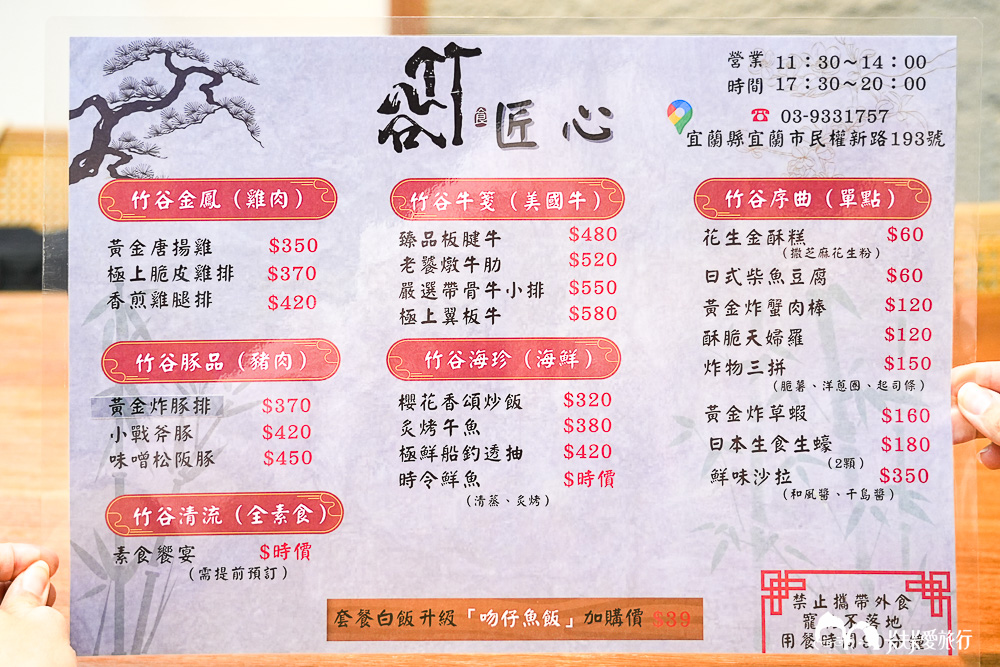 竹谷
食
匠心
營業 11：30～14：00
時間 17：30～20：00
☎ 03-9331757
宜蘭縣宜蘭市民權新路193號
竹谷金鳳（雞肉）
黃金唐揚雞 $350
極上脆皮雞排 $370
香煎雞腿排 $420
竹谷豚品（豬肉）
黃金炸豚排 $370
小戰斧豚 $420
味噌松阪豚 $450
竹谷清流（全素食）
素食饗宴 $時價
（需提前預訂）
竹谷牛箋（美國牛）
臻品板腱牛 $480
老饕燉牛肋 $520
嚴選帶骨牛小排 $550
極上翼板牛 $580
竹谷海珍（海鮮）
櫻花香頌炒飯 $320
炙烤午魚 $380
極鮮船釣透抽 $420
時令鮮魚 $時價
（清蒸、炙烤）
竹谷序曲（單點）
花生金酥糕 $60
（撒芝麻花生粉）
日式柴魚豆腐 $60
黃金炸蟹肉棒 $120
酥脆天婦羅 $120
炸物三拼 $150
（脆薯、洋蔥圈、起司條）
黃金炸草蝦 $160
日本生食生蠔 $180
（2顆）
鮮味沙拉 $350
（和風醬、千島醬）
套餐白飯升級「吻仔魚飯」加購價 $39
禁止攜帶外食
寵 不落地
用餐時間90分鐘
愛旅行